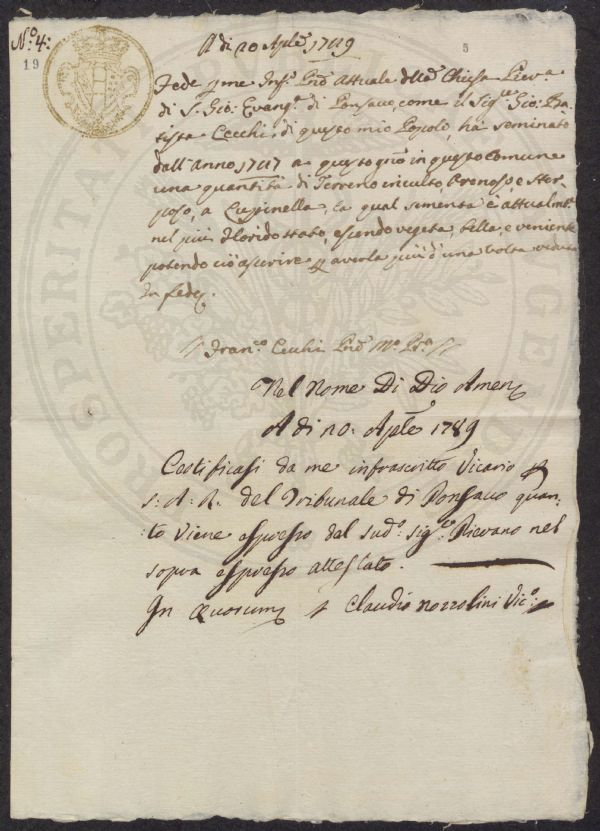 N.º 4:
19
5
A di 20 Aple 1789
Fede p me Inf.º Pnê Attuale della Chiesa Pieva
di S. Gio: Evang.ª di Ponsacco, come il Sig.re Gio: Ba-
tista Cecchi, di questo mio Popolo, ha seminato
dall'Anno 1787 a questo gno in questo Comune
una quantità di Terreno inculto, Pronoso, e Ster-
poso, a Cuspinella, la qual sementa è attualmte
nel più florido stato, essendo vegeta, bella, e veniente
potendo ciò asserire p averla più d'una volta veduta
In fede
Fran.co Cecchi Pnê Mº Prª
Nel Nome Di Dio Amen
A di 20. Aple 1789
Certificasi da me infrascritto Vicario p
S: A: R. del Tribunale di Ponsacco quan-
to viene espresso dal sud.º sig.re Pievano nel
sopra espresso attestato.
In Quorum Claudio Nozzolini Vic.º
SPERITAN